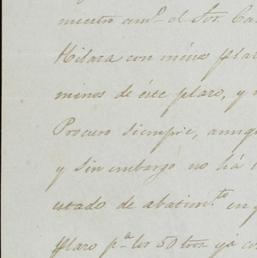 nuestro am.º el Sor. Ca
Hilara con ménos pla
minos de éste plazo, y
Procuro siempre, aunq
y sin embargo no há
estado de abatim.to en
plazo p.a los 50 ton. yá co